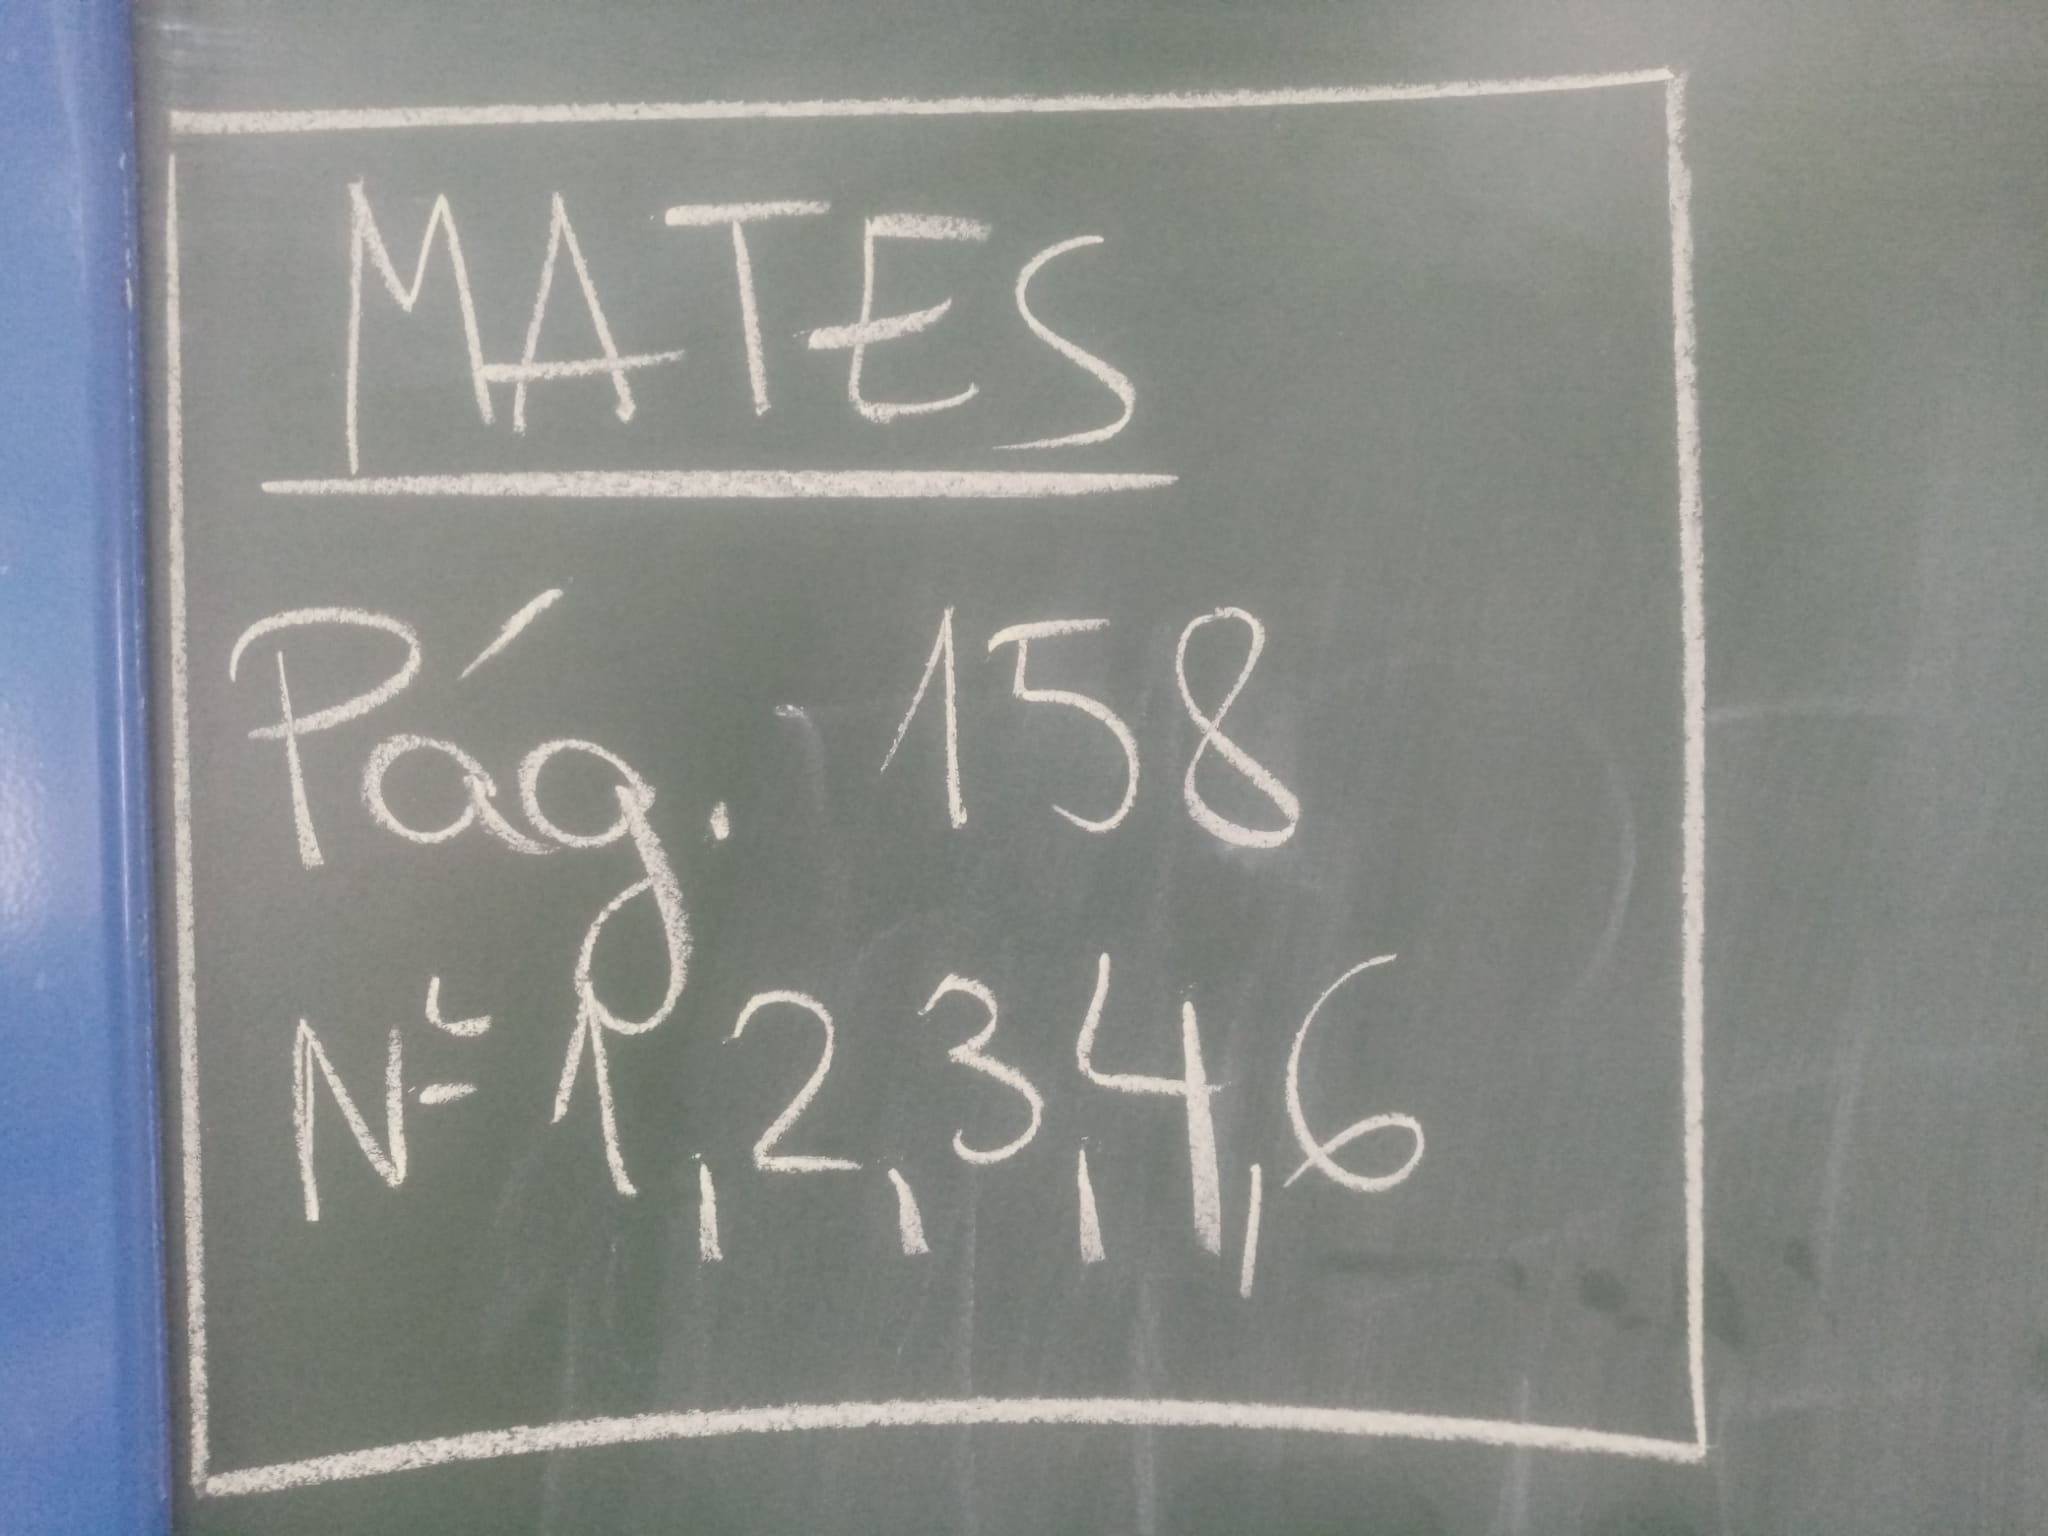 MATES
Pág. 158
Nº 1, 2, 3, 4, 6